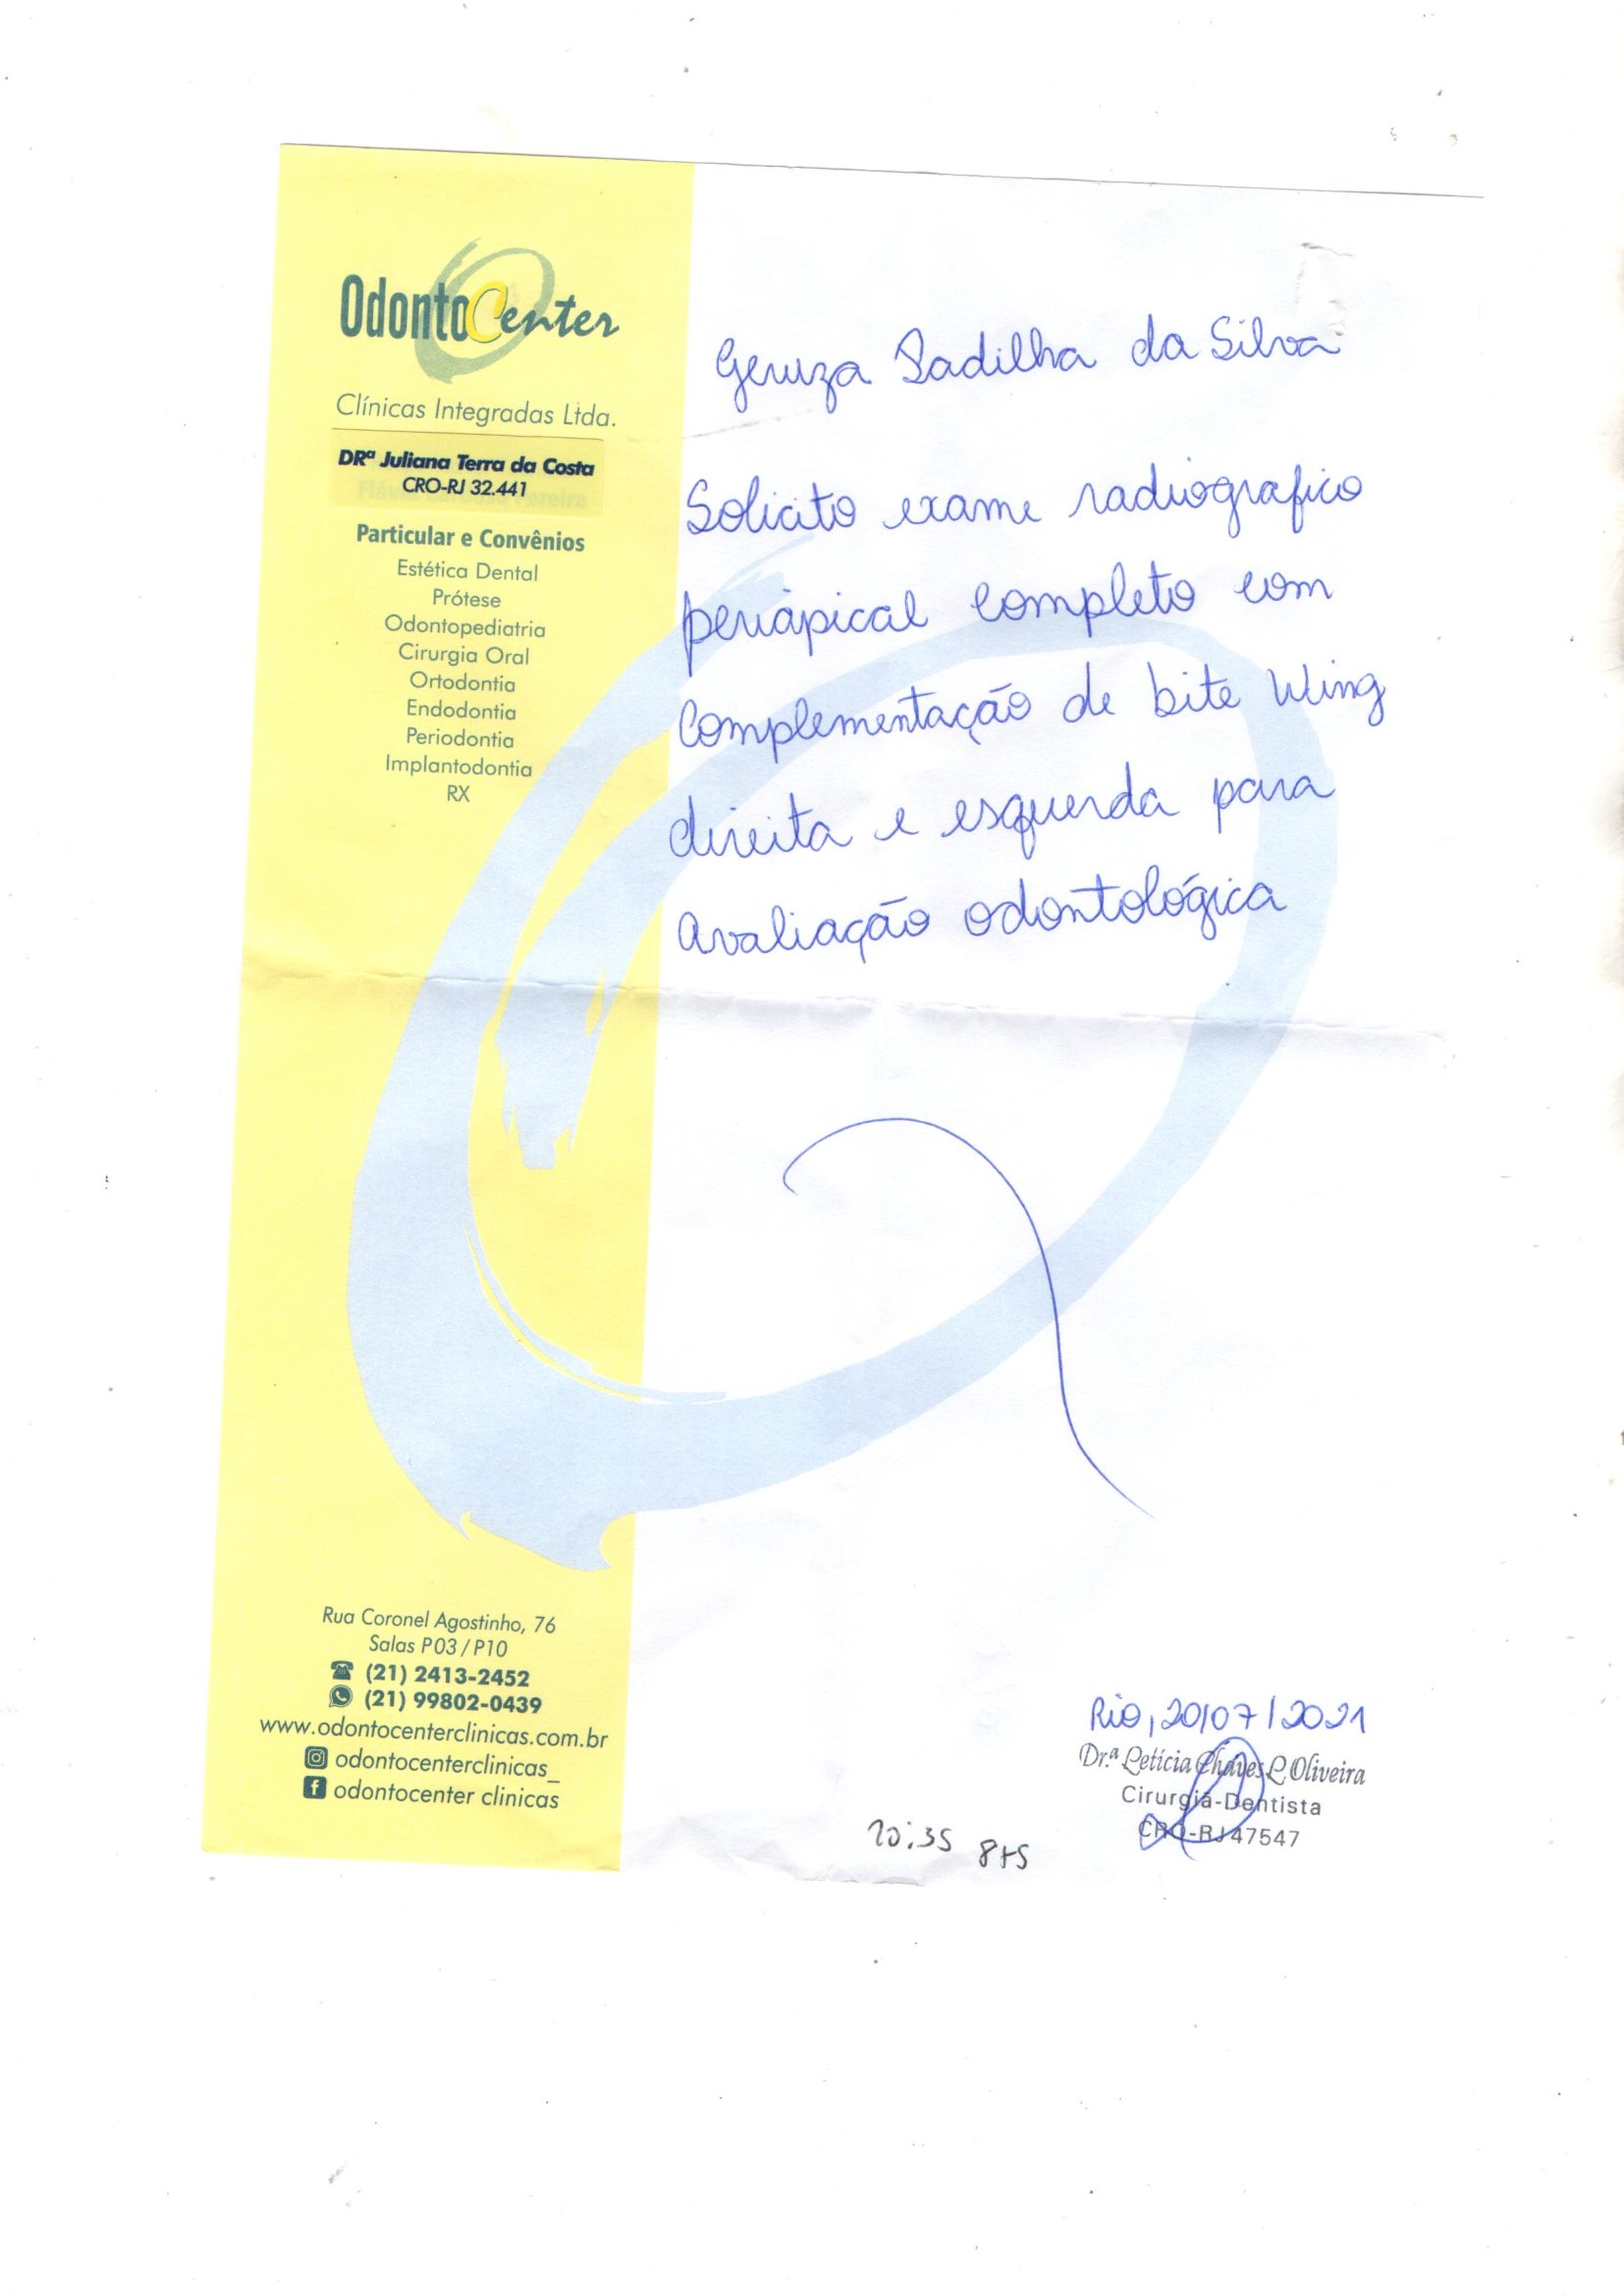 OdontoCenter
Clínicas Integradas Ltda.
DRª Juliana Terra da Costa
CRO-RJ 32.441
Particular e Convênios
Estética Dental
Prótese
Odontopediatria
Cirurgia Oral
Ortodontia
Endodontia
Periodontia
Implantodontia
RX
Geruza Padilha da Silva
Solicito exame radiografico
periápical completo com
Complementação de bite Wing
direita e esquerda para
Avaliação odontológica
Rua Coronel Agostinho, 76
Salas P03 / P10
(21) 2413-2452
(21) 99802-0439
www.odontocenterclinicas.com.br
odontocenterclinicas_
odontocenter clinicas
Rio, 20/07/2021
Dr.ª Letícia Chaves L. Oliveira
Cirurgiã-Dentista
CRO-RJ 47547